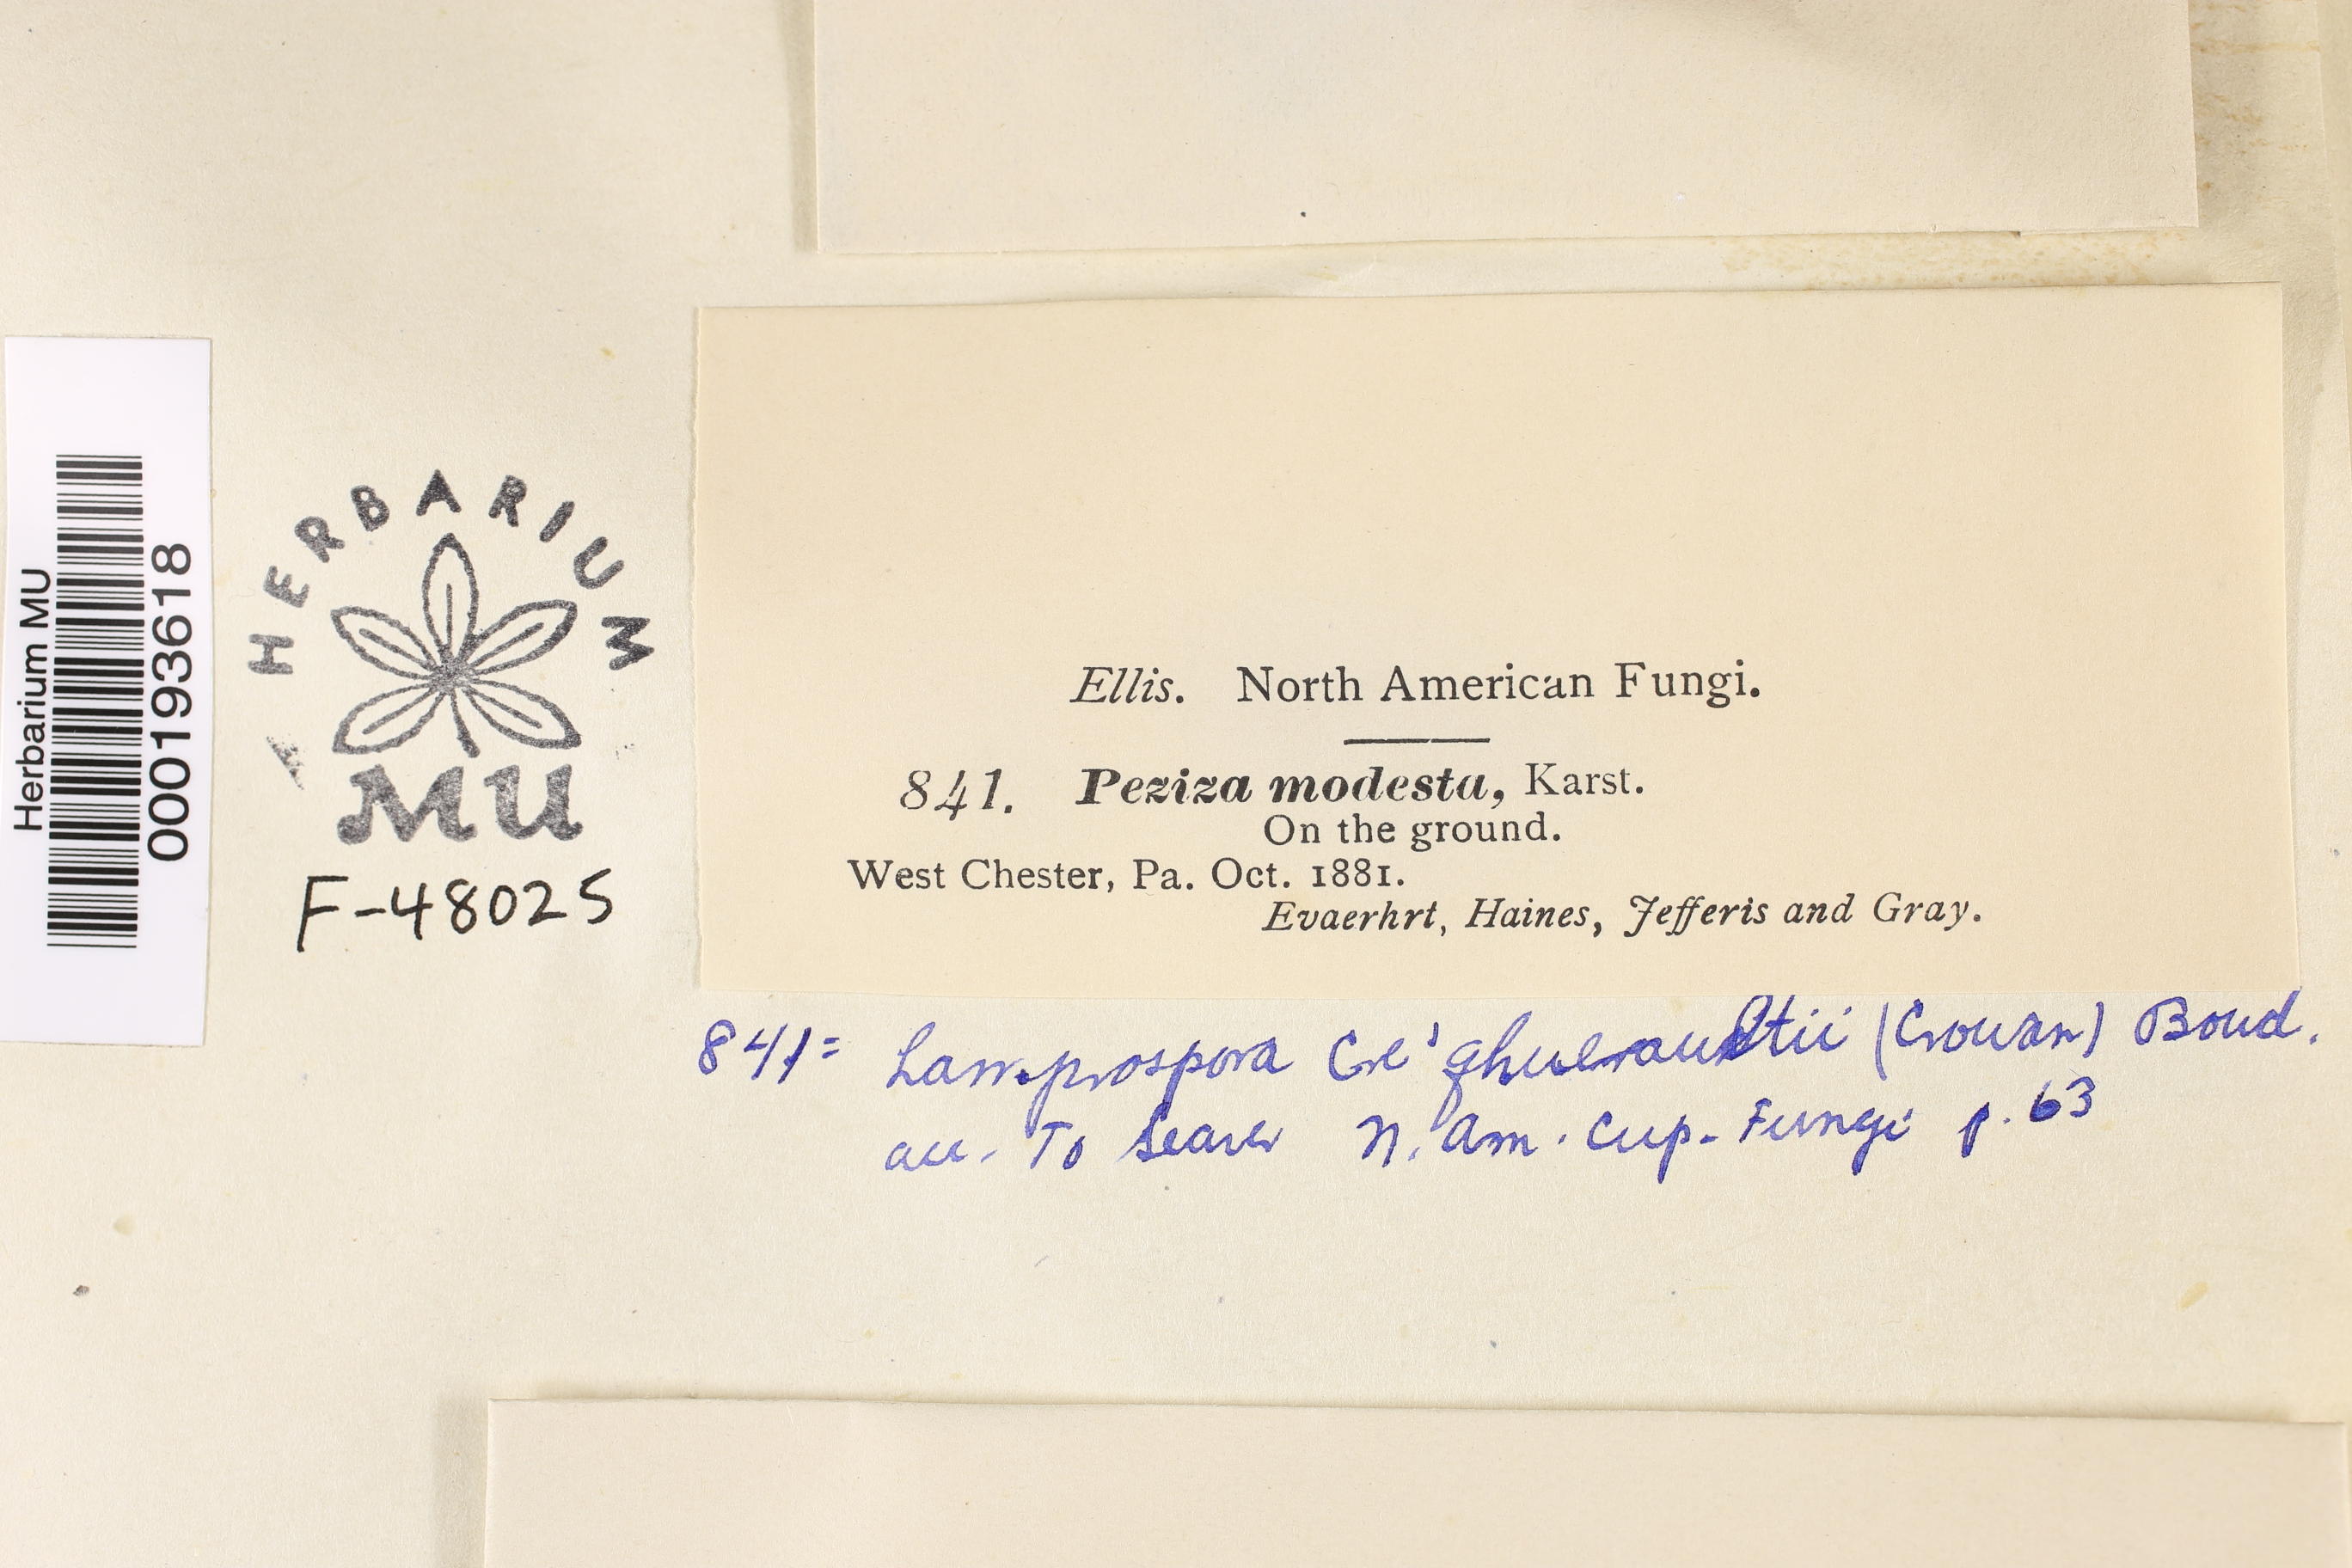 Herbarium MU
000193618
HERBARIUM
MU
F-48025
Ellis. North American Fungi.
841. Peziza modesta, Karst.
On the ground.
West Chester, Pa. Oct. 1881.
Evaerhrt, Haines, Jefferis and Gray.
841= Lamprospora Cre' (Crouan) Boud.
acc. To Seaver N. Am. Cup-Fungi p. 63